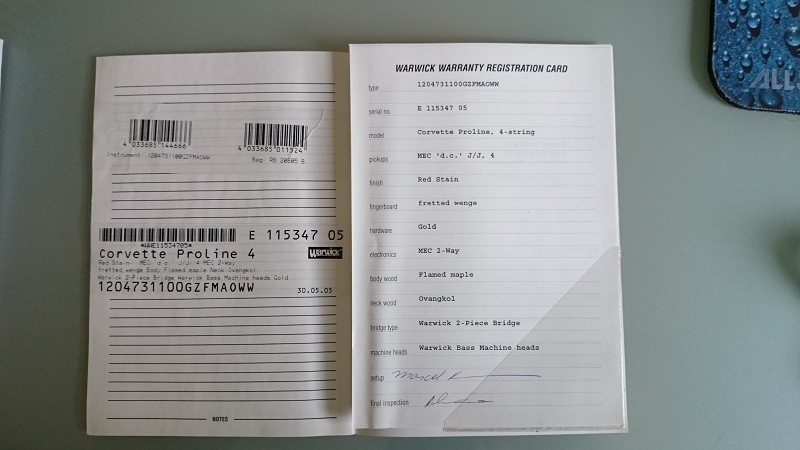 4 033685 144666
4 033685 011524
Instrument: 1204731100GZFMAOWW
Bag: RB 20605 B
E 115347 05
*WWE11534705*
Corvette Proline 4
Warwick
Red Stain MEC 'd.c.' J/J, 4 MEC 2-Way
fretted wenge Body Flamed maple Neck Ovangkol
Warwick 2-Piece Bridge Warwick Bass Machine heads Gold
1204731100GZFMAOWW
30.05.05
NOTES
WARWICK WARRANTY REGISTRATION CARD
type 1204731100GZFMAOWW
serial no. E 115347 05
model Corvette Proline, 4-string
pickups MEC 'd.c.' J/J, 4
finish Red Stain
fingerboard fretted wenge
hardware Gold
electronics MEC 2-Way
body wood Flamed maple
neck wood Ovangkol
bridge type Warwick 2-Piece Bridge
machine heads Warwick Bass Machine heads
setup
final inspection